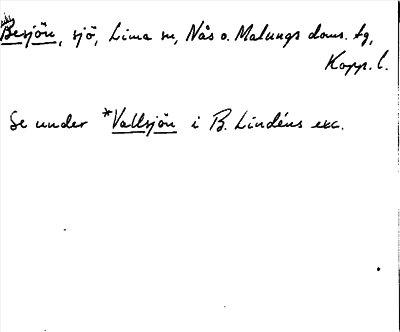 Besjön, sjö, Lima sn, Nås o. Malungs doms. tg,
Kopp. l.
Se under *Vallsjön i B. Lindéns exc.